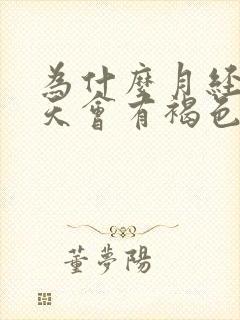 為什麼月經
天會有褐色
董夢陽